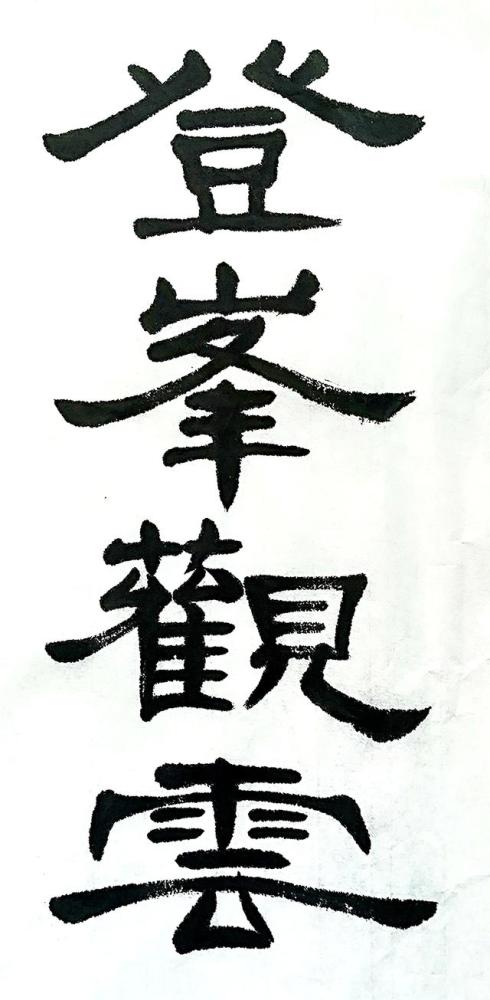 登峯觀雲